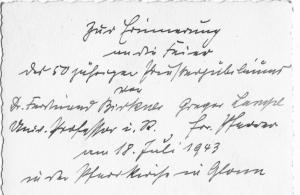 Zur Erinnerung
an die Feier
des 50 jährigen Priesterjubiläums
von
Dr. Ferdinand Birkner Gregor Lampl
Univ. Professor i. R. fr. Pfarrer
am 18. Juli 1943
in der Pfarrkirche in Glonn